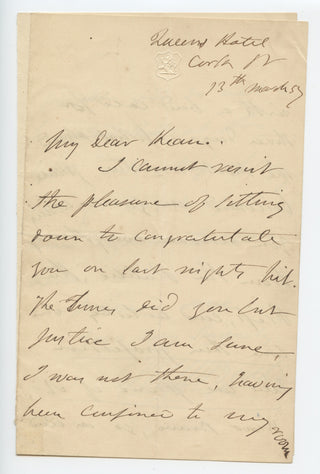 Queens Hotel
Cork St
13th March 57
My Dear Kean.
I cannot resist
the pleasure of sitting
down to congratulate
you on last nights hit.
The Times did you but
justice I am sure,
I was not there, having
been confined to my room